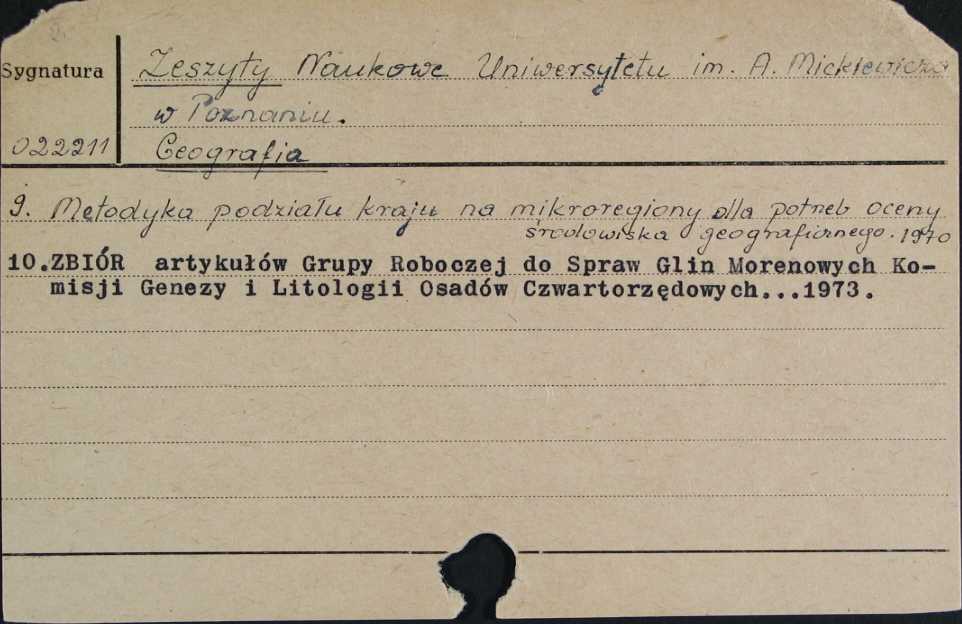 Sygnatura
Zeszyty Naukowe Uniwersytetu im. A. Mickiewicza
w Poznaniu.
022211
Geografia
9. Metodyka podziału kraju na mikroregiony dla potrzeb oceny
środowiska geograficznego. 1970
10.ZBIÓR artykułów Grupy Roboczej do Spraw Glin Morenowych Ko-
misji Genezy i Litologii Osadów Czwartorzędowych...1973.